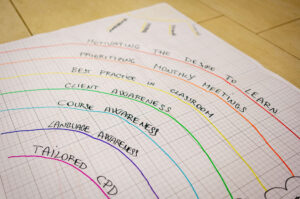 MOTIVATING THE DESIRE TO LEARN
PRIORITISING MONTHLY MEETINGS
BEST PRACTICE IN CLASSROOM
CLIENT AWARENESS
COURSE AWARENESS
LANGUAGE AWARENESS
TAILORED CPD